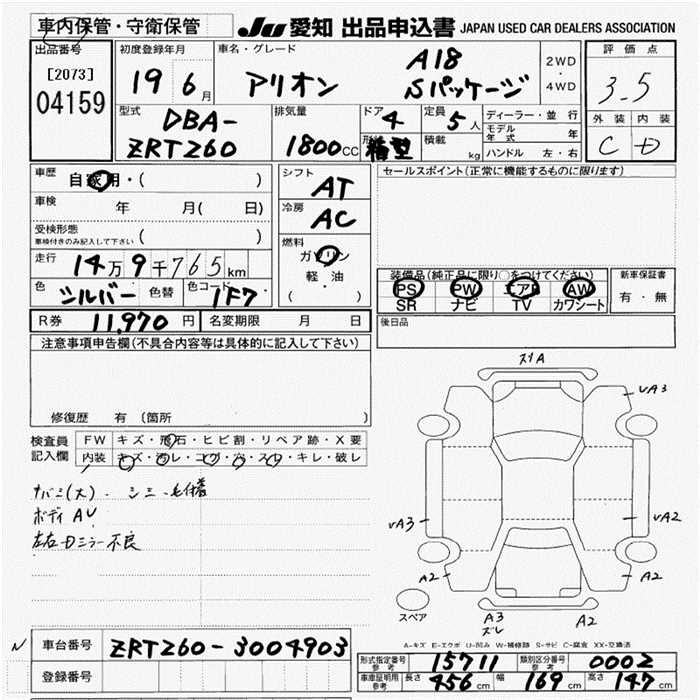 車内保管・守衛保管
JU 愛知 出品申込書 JAPAN USED CAR DEALERS ASSOCIATION
出品番号
[2073]
04159
初度登録年月
19 6月
車名・グレード
アリオン
A18
Sパッケージ
2WD
・
4WD
評価点
3.5
外装 内装
C D
型式
DBA-
ZRT260
排気量
1800CC
ドア
4
形状
箱型
定員
5人
積載
kg
ディーラー・並行
モデル年式 年
ハンドル 左・右
車歴
自家用・( )
車検
年 月( 日)
受検形態
車検付きのみ記入して下さい ( )
走行
14万9千765km
色
シルバー
色替
色コード
1F7
シフト
AT
冷房
AC
燃料
ガソリン
軽・油
( )
セールスポイント(正常に機能するものに限ります)
装備品(純正品に限り○をつけてください)
PS PW エアB AW
SR ナビ TV カワシート
新車保証書
有・無
R券 11,970円 名変期限 月 日
後日品
注意事項申告欄(不具合内容等は具体的に記入して下さい)
修復歴 有 (箇所 )
検査員
記入欄
FW キズ・飛石・ヒビ割・リペア跡・X要
内装 キズ・汚レ・コゲ・穴・スレ・キレ・破レ
ボディ AU
左右Dミラー不良
スリA
VA3
VA3
VA2
A2
A2
スペア
A3
ズレ
A2
A-キズ E-エクボ U-凹み W-補修跡 S-サビ C-腐食 XX-交換済
N
車台番号 ZRT260-3004903
登録番号
形式指定番号
参考
15711
類別区分番号
参考
0002
車庫証明用
参考
長さ 456cm 幅 169cm 高さ 147cm